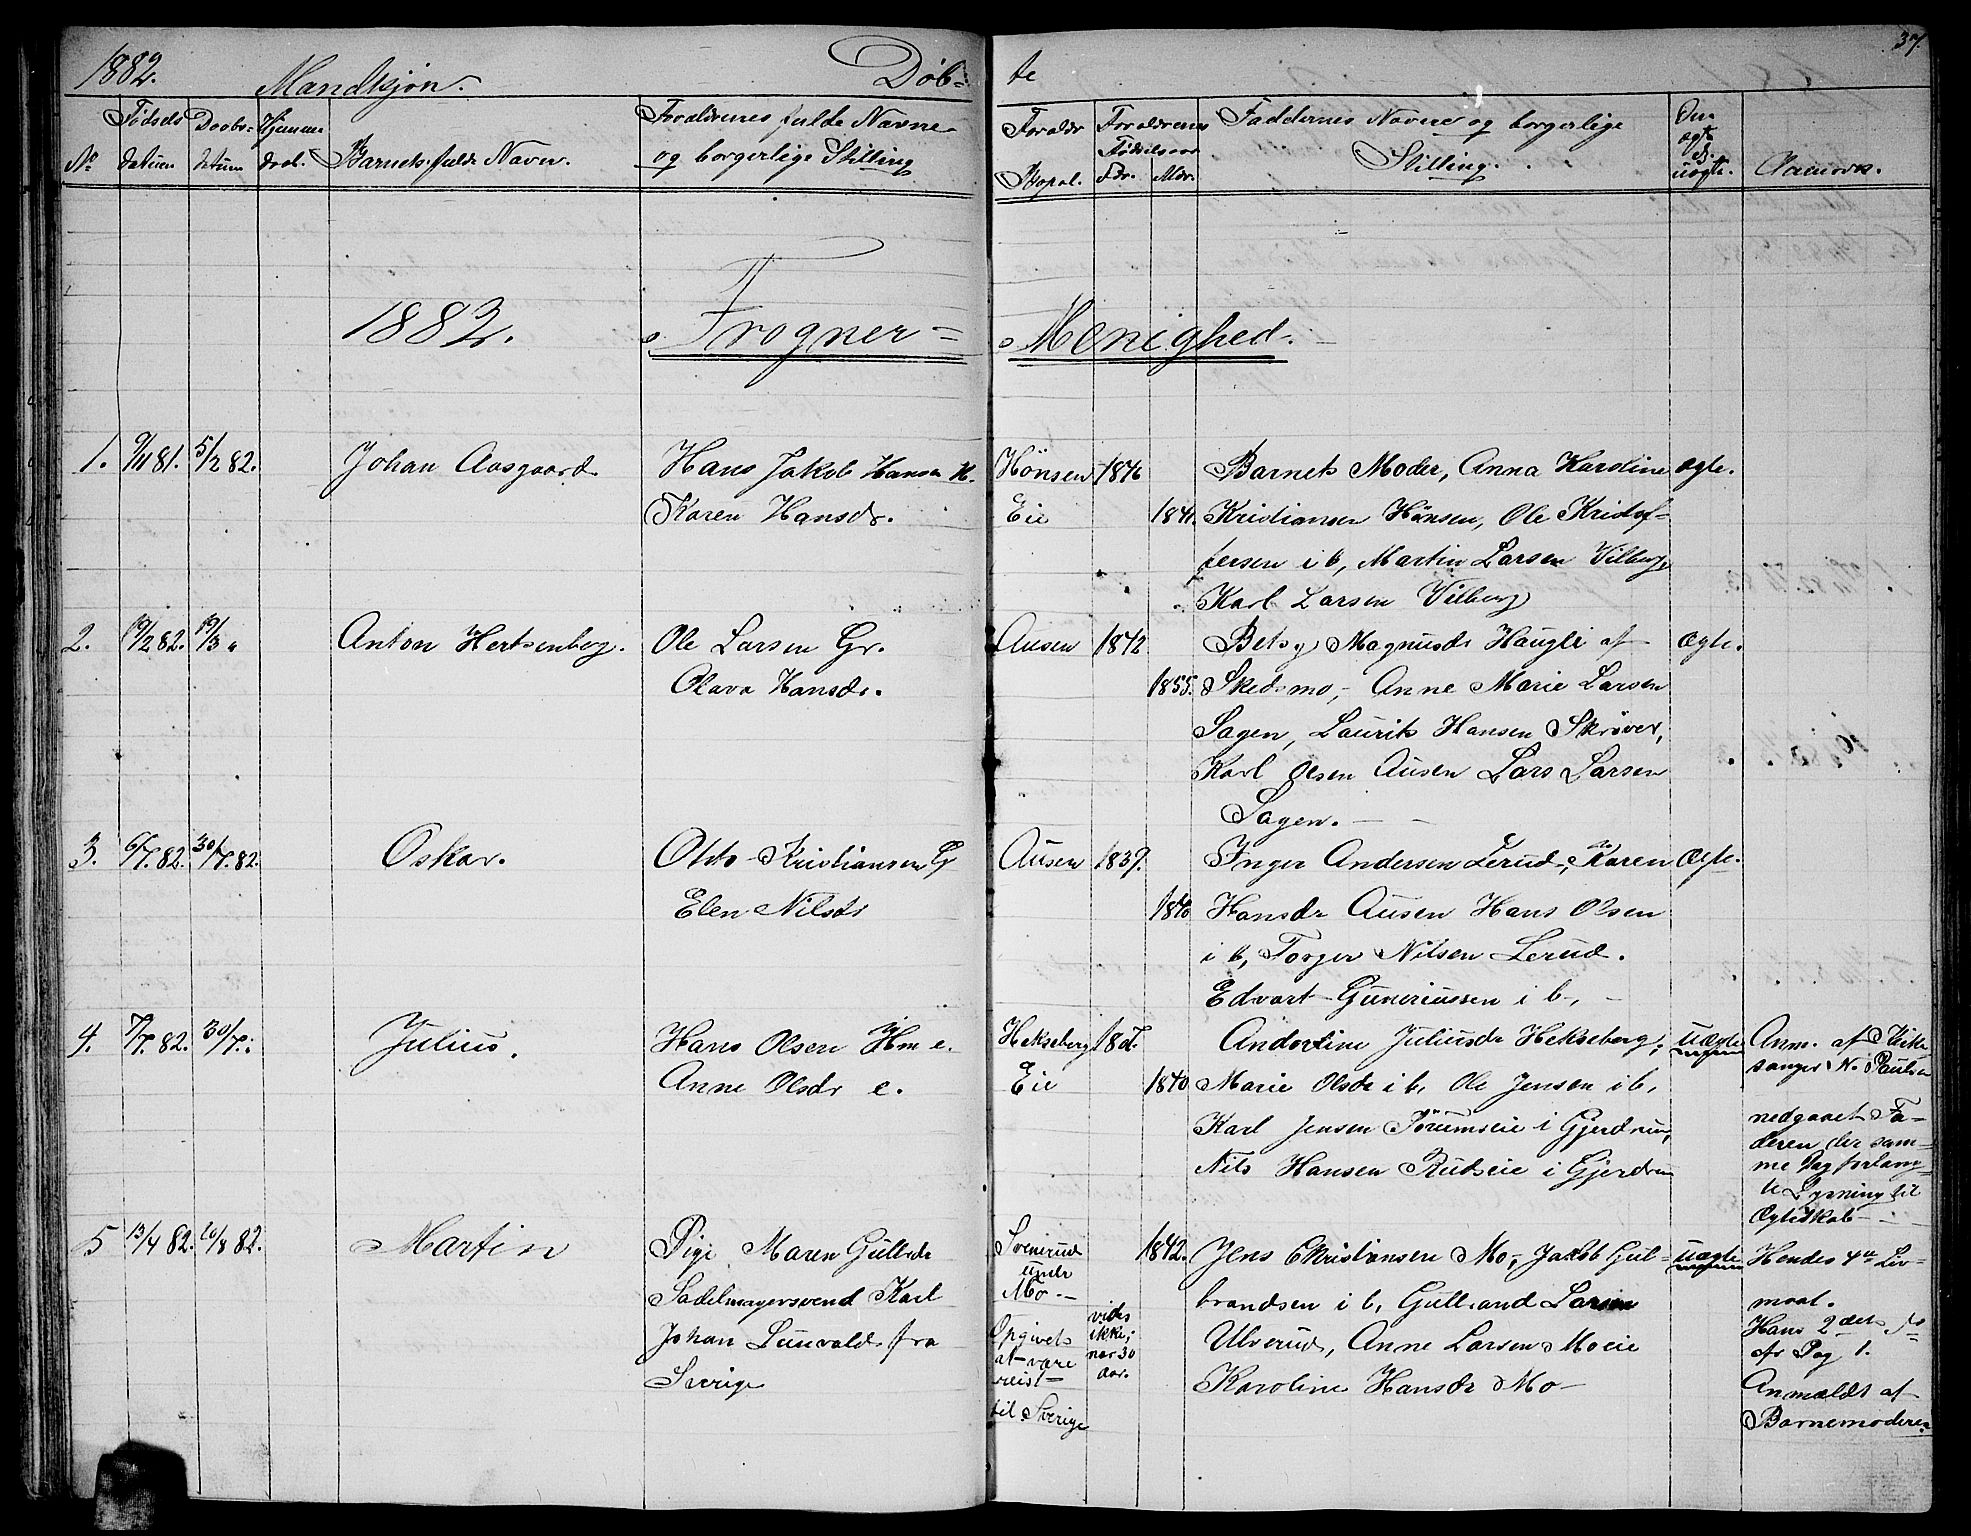 1882. Mandkjøn. Døb-
te 37.
No Fødsels datum Doobs- datum Hjemme doob. Barnets fulde Navn. Forældrenes fulde Navne og borgerlige Stilling
Foraldr Bopæl. Forældrenes Fødselsaar Fdr. Mdr. Faddernes Navne og borgerlige Stilling. Om ægte el. uægte. Anmærk.
1882. Frogner= Menighed.
1. 9/11 81. 5/2 82. Johan Aasgaard Hans Jakob Hansen H. Hönsen 1846 Barnets Moder, Anna Karoline ægte.
Karen Hansdr. Eie 1841. Kristiansen Hönsen, Ole Kristof-
fersen i b, Martin Larsen Vilberg
Karl Larsen Vilberg
2. 19/2 82. 19/3 " Anton Hertsenberg. Ole Larsen Gr. Ausen 1842 Betsy Magnusdr Haugli af Ægte.
Olava Hansdr. 1855. Skedsmo, Anne Marie Larsen
Sagen, Laurits Hansen Skrøver,
Karl Olsen Ausen Lars Larsen
Sagen.
3. 6/7. 82. 30/7. 82. Oskar. Otto Kristiansen G Ausen 1839. Inger Andersen Lerud, Karen Ægte.
Elen Nilsdr 1840 Hansdr Ausen Hans Olsen
i b, Torger Nilsen Lerud.
Edvart Guneriussen i b,
4. 7/7. 82. 30/7. " Julius. Hans Olsen Hm e. Hekseberg Andorine Juliusdr Hekseberg, uægte Anm. af Kirke
Anne Olsdr e. Eie 1840 Marie Olsdr i b, Ole Jensen i b, sanger N. Paulsen
Karl Jensen Sörumseie i Gjerdrum, nedgaaet Fa-
Nils Hansen Rudseie i Gjerdrum deren der sam-
me Dag forlang-
te Lysning til
Ægteskab
5 13/4 82. 20/8 82. Martin Pige Maren Gulbrdr Svenrud 1842. Jens Christiansen Mo, Jakob Gul- uægte Hendes 4de Lei-
Sadelmagersvend Karl undr Mo brandsen i b, Gulbrand Larsen maal.
Johan Lunvald fra Opgivets vides ikke, Ulverud, Anne Larsen Moeie Hans 2det
Sverige at være nær 30 Karoline Hansdr Mo afr Dag 1.
reist aar. Anmeldt af
til Sverige Barnemoderen